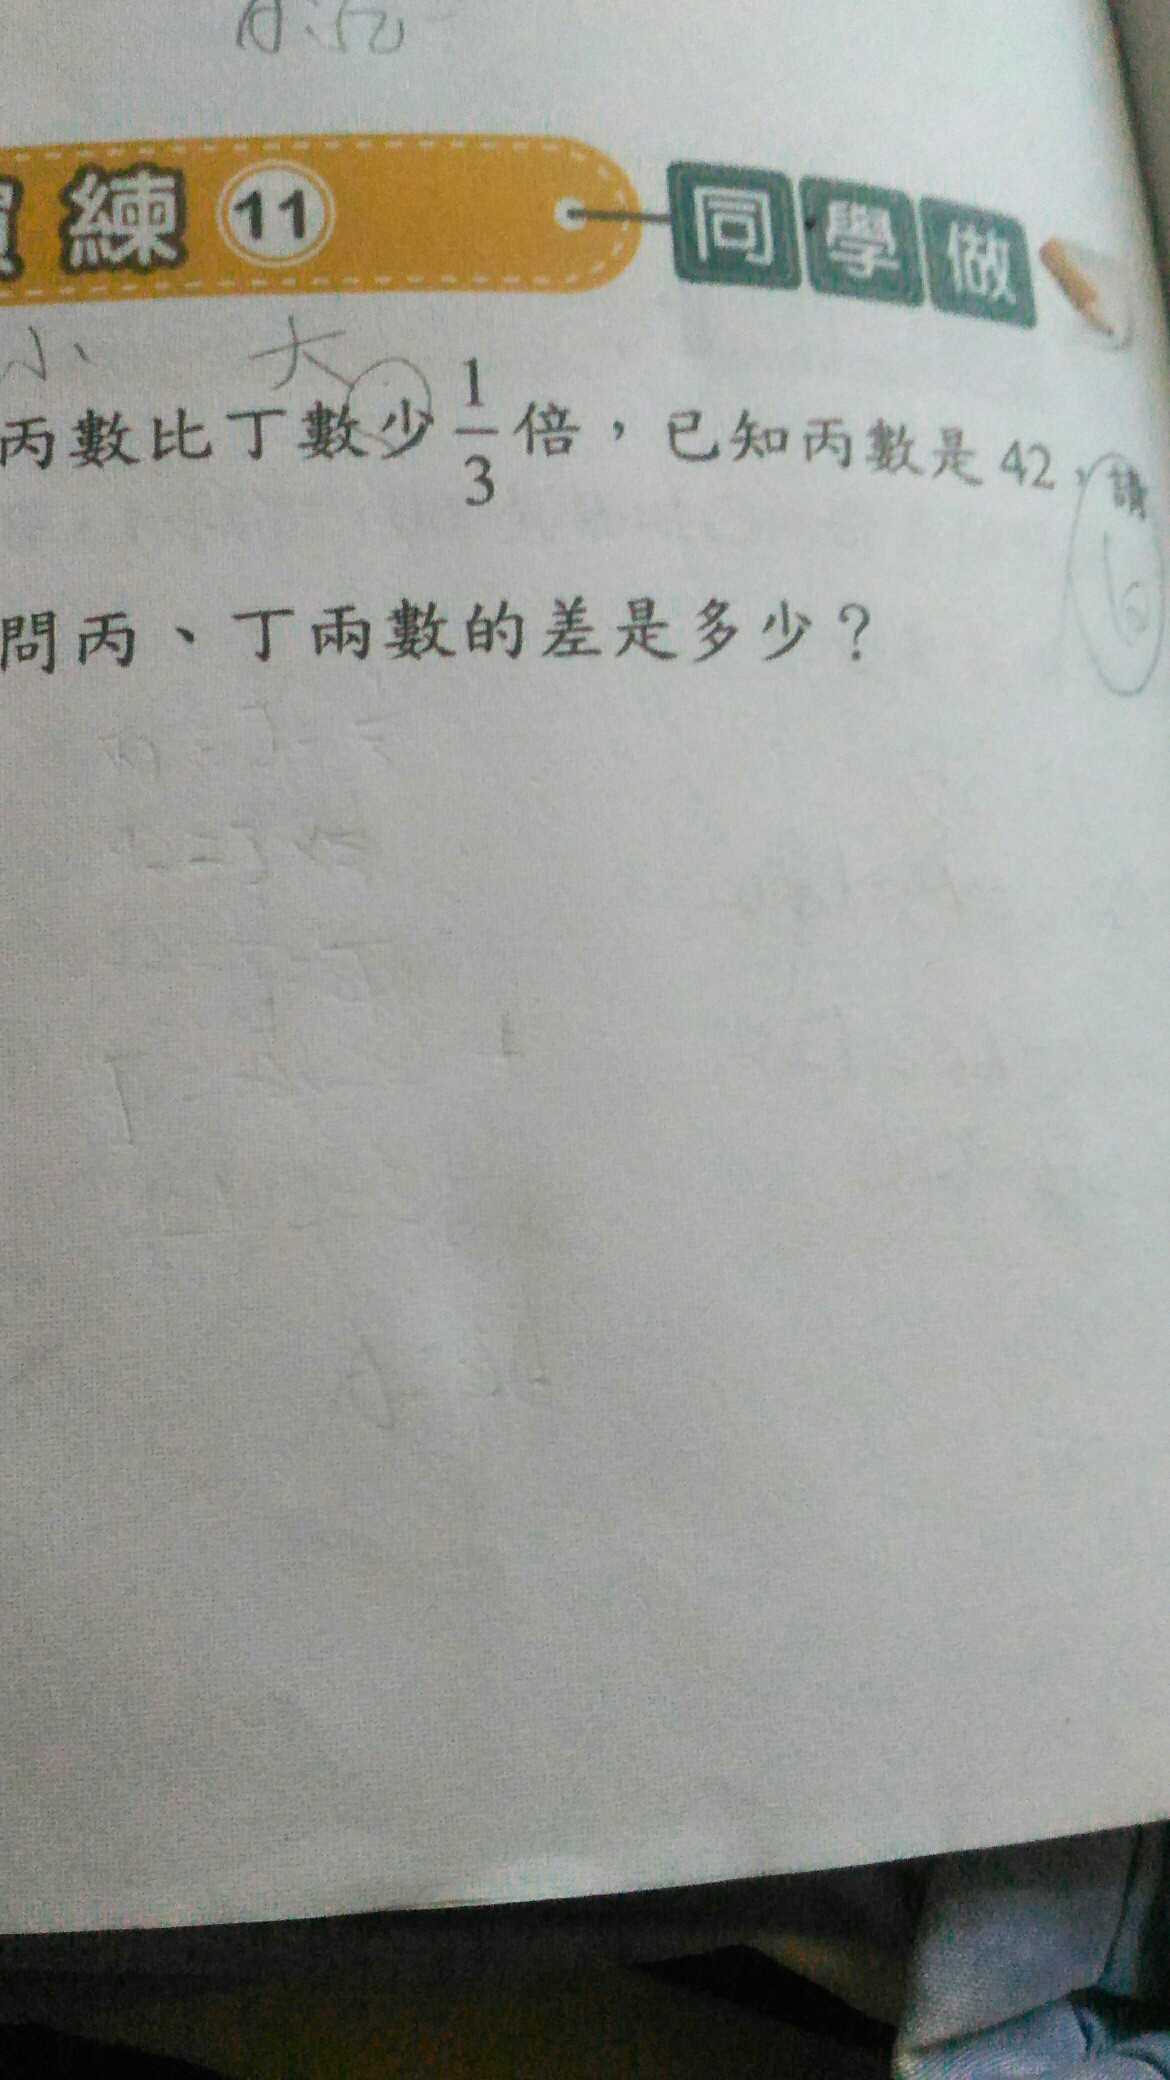 練 11 同學做
小 大
丙數比丁數少 1/3 倍，已知丙數是 42，請
問丙、丁兩數的差是多少？